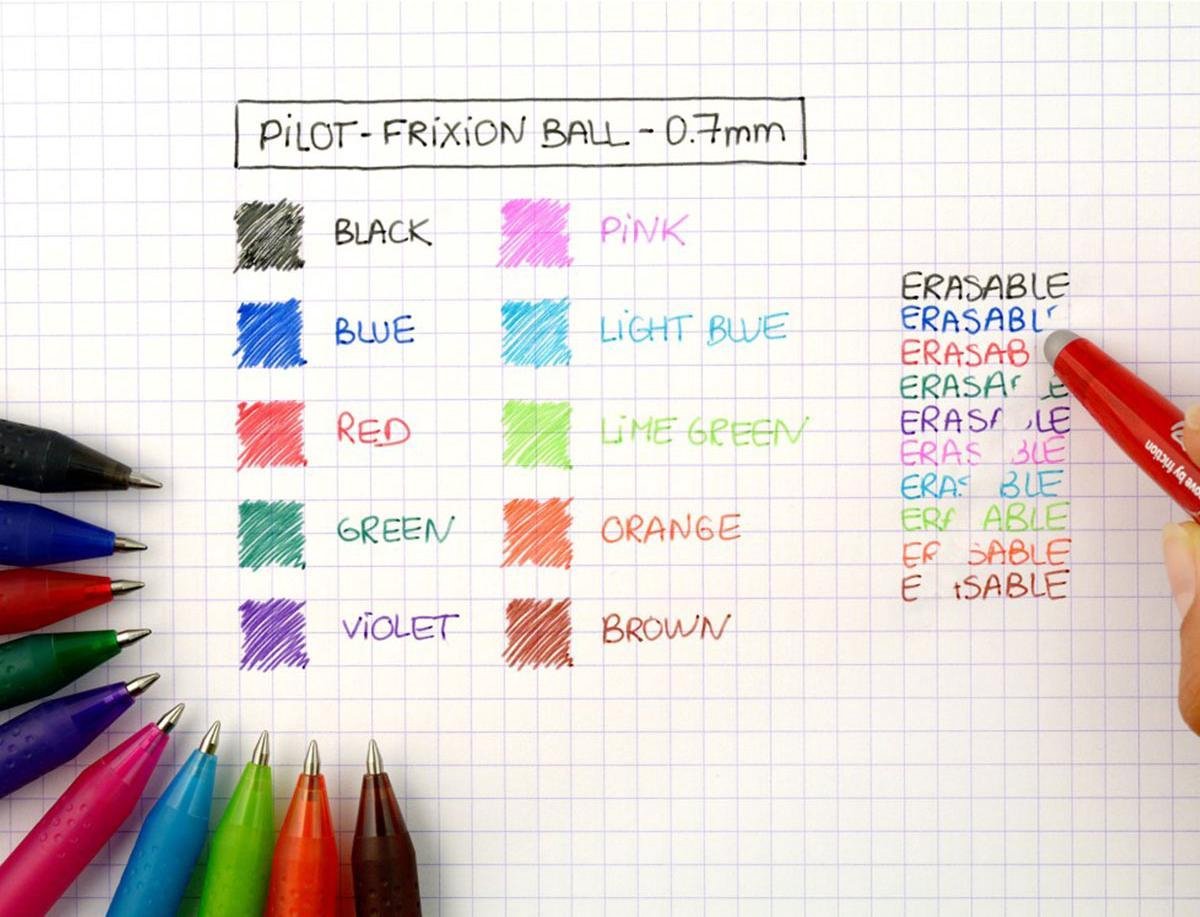 PiLOT-FRiXiON BALL-0.7mm
BLACK
BLUE
RED
GREEN
ViOLET
PiNK
LiGHT BLUE
LiME GREEN
ORANGE
BROWN
ERASABLE
ERASABL
ERASAB
ERASA E
ERAS LE
ERAS BLE
ERAS BLE
ERA ABLE
ER SABLE
E SABLE
by friction